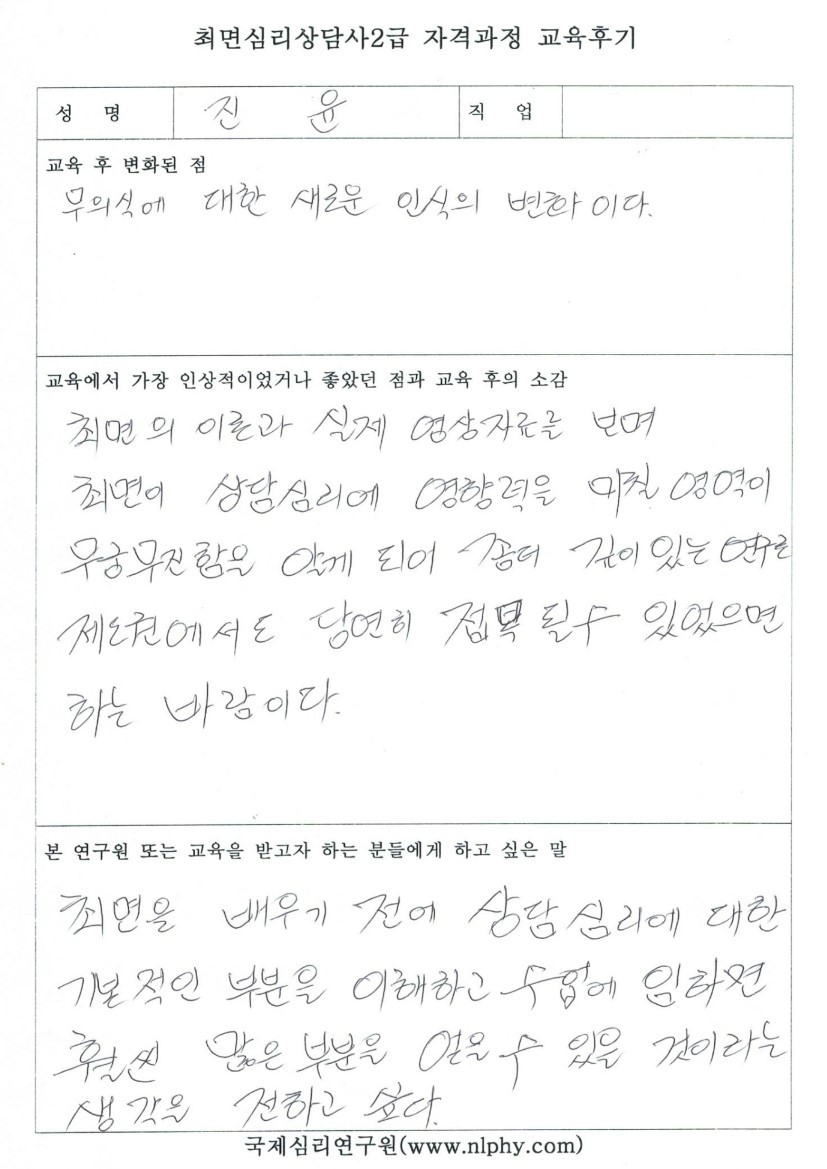 최면심리상담사2급 자격과정 교육후기
성 명 진 윤 직 업
교육 후 변화된 점
무의식에 대한 새로운 인식의 변화이다.
교육에서 가장 인상적이었거나 좋았던 점과 교육 후의 소감
최면의 이론과 실제 영상자료를 보며
최면이 상담심리에 영향력을 미칠 영역이
무궁무진함을 알게 되어 좀더 깊이 있는 연구로
제도권에서도 당연히 접목 될수 있었으면
하는 바람이다.
본 연구원 또는 교육을 받고자 하는 분들에게 하고 싶은 말
최면을 배우기 전에 상담심리에 대한
기본적인 부분을 이해하고 수업에 임하면
훨씬 많은 부분을 얻을 수 있을 것이라는
생각을 전하고 싶다.
국제심리연구원(www.nlphy.com)